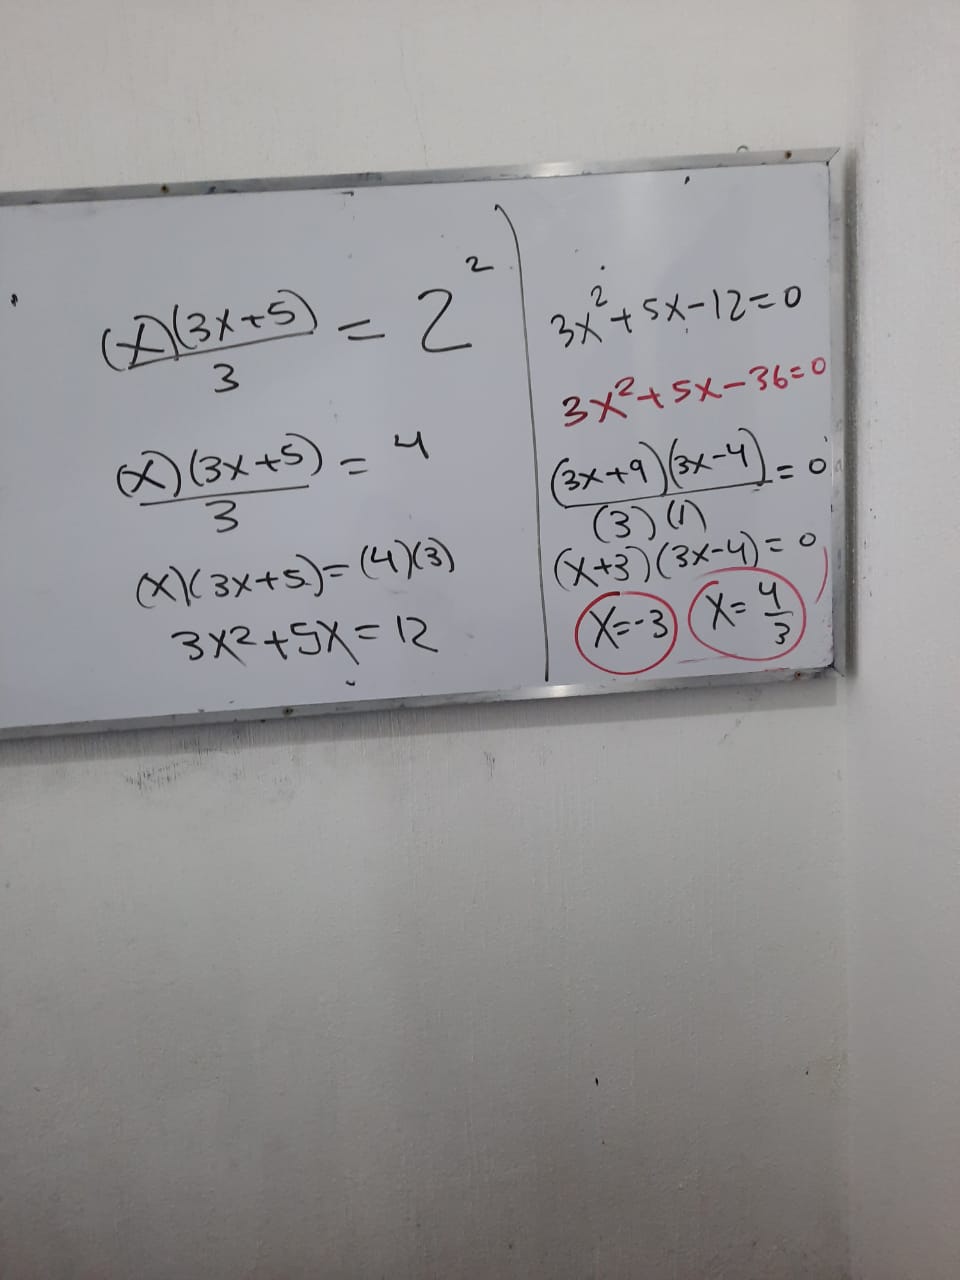 (x)(3x+5)/3 = 2²
(x)(3x+5)/3 = 4
(x)(3x+5)=(4)(3)
3x²+5x=12
3x²+5x-12=0
3x²+5x-36=0
(3x+9)(3x-4)/(3)(1)=0
(x+3)(3x-4)=0
x=-3 x=4/3